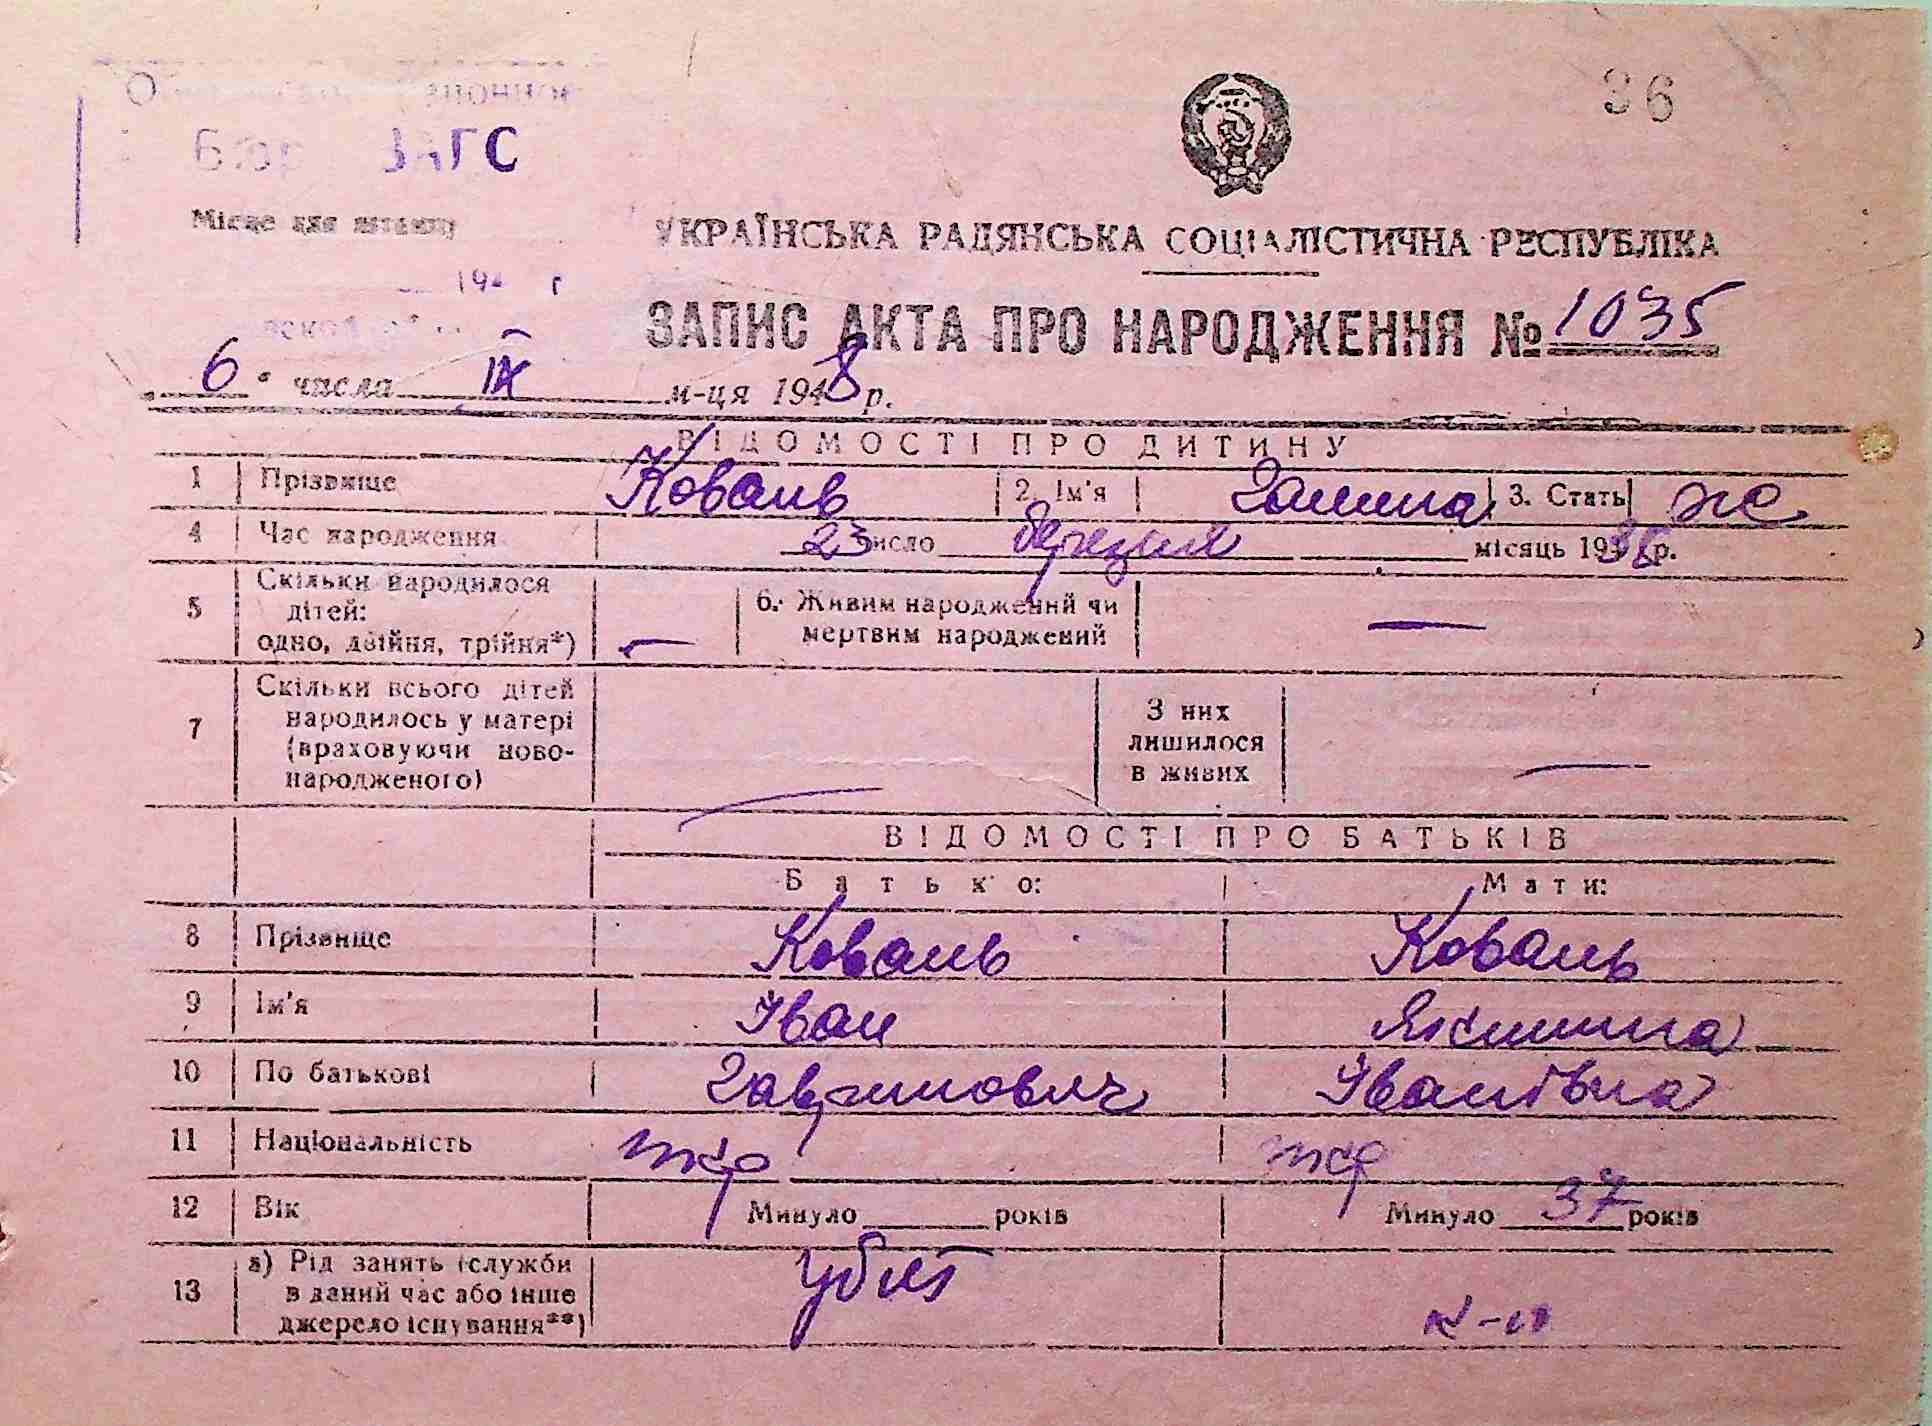 36
ЗАГС
Місце для штампу
194 г
УКРАЇНСЬКА РАДЯНСЬКА СОЦІАЛІСТИЧНА РЕСПУБЛІКА
ЗАПИС АКТА ПРО НАРОДЖЕННЯ № 1035
6 числа IX м-ця 1948 р.
ВІДОМОСТІ ПРО ДИТИНУ
1 Прізвище Коваль 2. Ім'я Галина 3. Стать жс
4 Час народження 23 число березня місяць 1936 р.
5 Скільки народилося дітей: одно, двійня, трійня*) — 6. Живим народжений чи мертвим народжений —
7 Скільки всього дітей народилось у матері (враховуючи новонародженого) — З них лишилося в живих —
ВІДОМОСТІ ПРО БАТЬКІВ
Батько: Мати:
8 Прізвище Коваль Коваль
9 Ім'я Іван Якилина
10 По батькові Гаврилович Іванівна
11 Національність укр укр
12 Вік Минуло років Минуло 37 років
13 а) Рід занять (служби в даний час або інше джерело існування**) убит к-ц